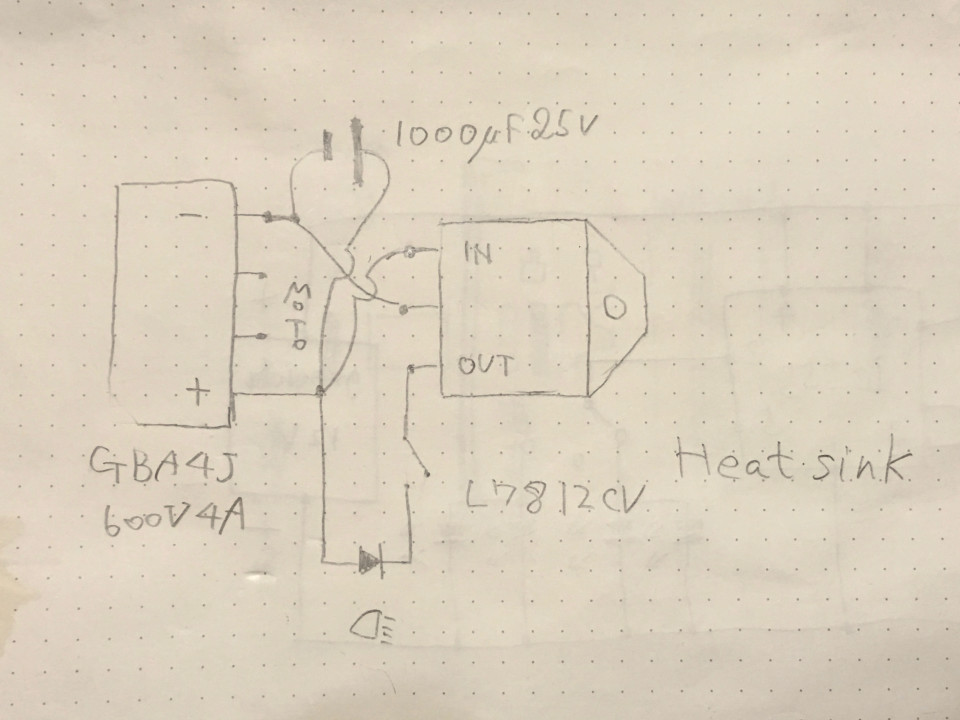 1000μF 25V
−
IN
Moto
OUT
+
GBA4J
600V 4A
L7812CV
Heat sink